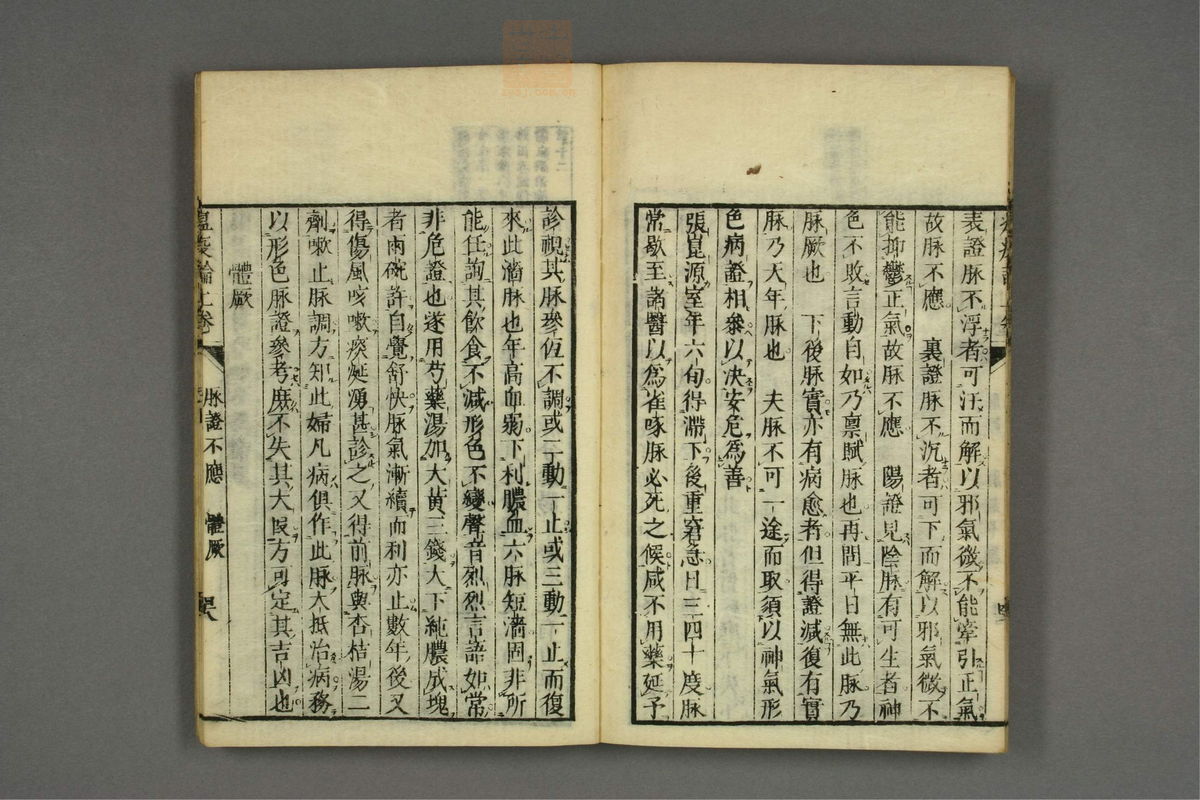 表證脉不浮者可汗而解以邪氣微不能牽引正氣
故脉不應　裏證脉不沉者可下而解以邪氣微不
能抑鬱正氣故脉不應　陽證見陰脉有可生者神
色不敗言動自如乃禀賦脉也再問平日無此脉乃
脉厥也　下後脉實亦有病愈者但得證減復有實
脉乃天年脉也　夫脉不可一途而取須以神氣形
色病證相參以決安危為善
張崑源室年六旬得滯下後重窘急日三四十度脉
常歇至諸醫以為雀啄脉必死之候咸不用藥延予
診視其脉參伍不調或二動一止或三動一止而復
來此濇脉也年高血弱下利膿血六脉短濇固非所
能任詢其飲食不減形色不變聲音烈烈言語如常
非危證也遂用芍藥湯加大黃三錢大下純膿成塊
者兩碗許自覺舒快脉氣漸續而利亦止數年後又
得傷風咳嗽痰涎湧甚診之又得前脉與杏桔湯二
劑嗽止脉調方知此婦凡病俱作此脉大抵治病務
以形色脉證參考庶不失其大段方可定其吉凶也
體厥
溫疫論上卷
脉證不應　體厥